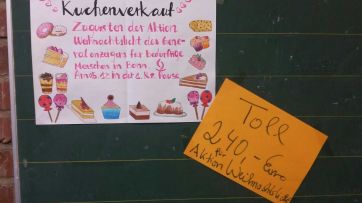 Kuchenverkauf
Zugunsten der Aktion
Weihnachtslicht des Gene-
ralanzeigers für bedürftige
Menschen in Bonn.
in der 1. & 2. Pause
Toll
240,- Euro
für
Aktion Weihnachtslicht